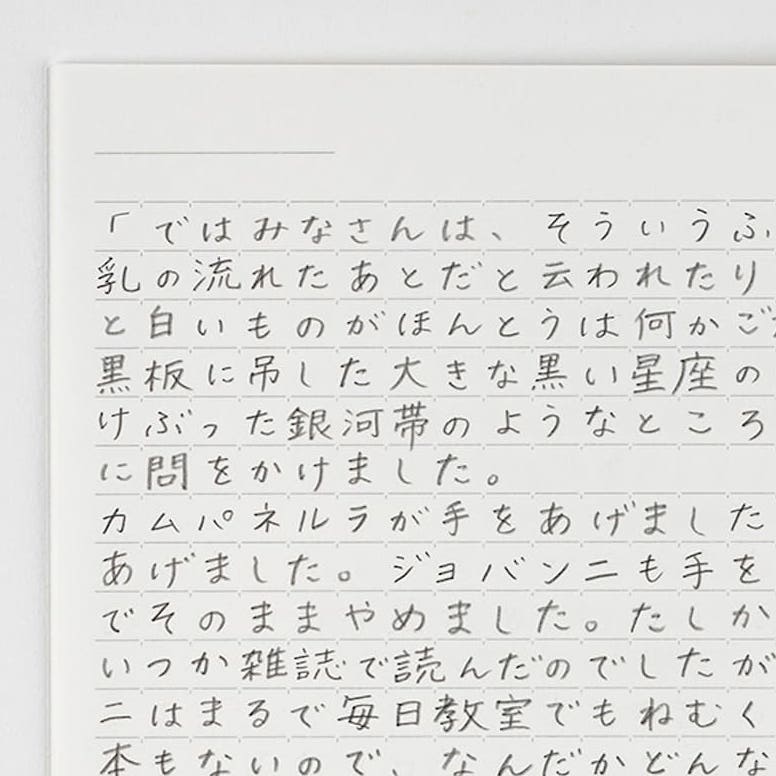 「ではみなさんは、そういうふ
乳の流れたあとだと云われたり
と白いものがほんとうは何かご
黒板に吊した大きな黒い星座の
けぶった銀河帯のようなところ
に問をかけました。
カムパネルラが手をあげました
あげました。ジョバンニも手を
でそのままやめました。たしか
いつか雑誌で読んだのでしたが
ニはまるで毎日教室でもねむく
本もないので、なんだかどんな